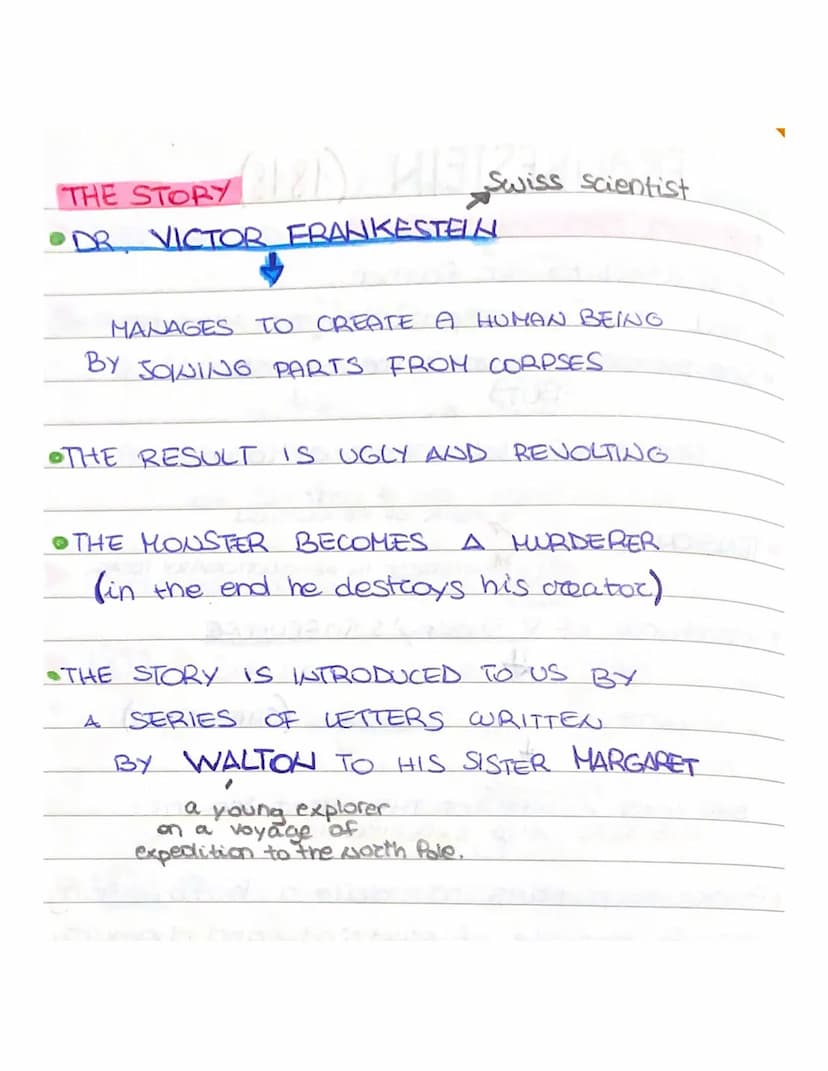 THE STORY
Swiss scientist
• DR. VICTOR FRANKESTEIN
MANAGES TO CREATE A HUMAN BEING
BY JOINING PARTS FROM CORPSES
• THE RESULT IS UGLY AND REVOLTING
• THE MONSTER BECOMES A MURDERER
(in the end he destroys his creator)
• THE STORY IS INTRODUCED TO US BY
A SERIES OF LETTERS WRITTEN
BY WALTON TO HIS SISTER MARGARET
a young explorer
on a voyage of
expedition to the North Pole.